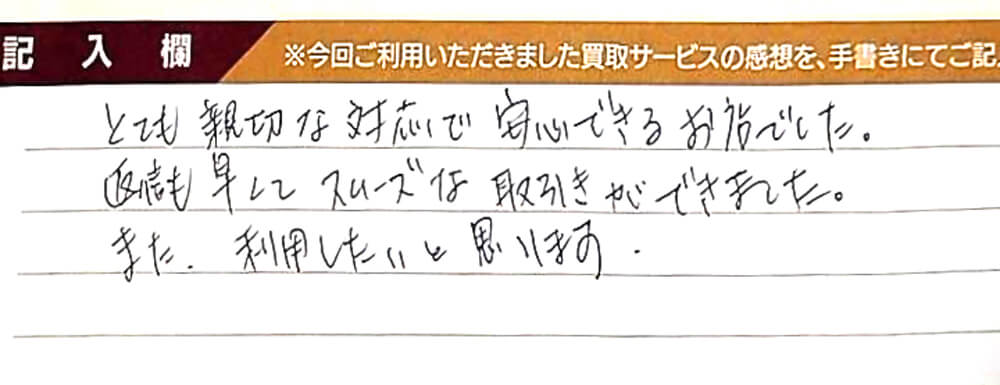 記入欄 ※今回ご利用いただきました買取サービスの感想を、手書きにてご記
とても親切な対応で安心できるお店でした。
返信も早くて スムーズな取引きができました。
また、利用したいと思います.